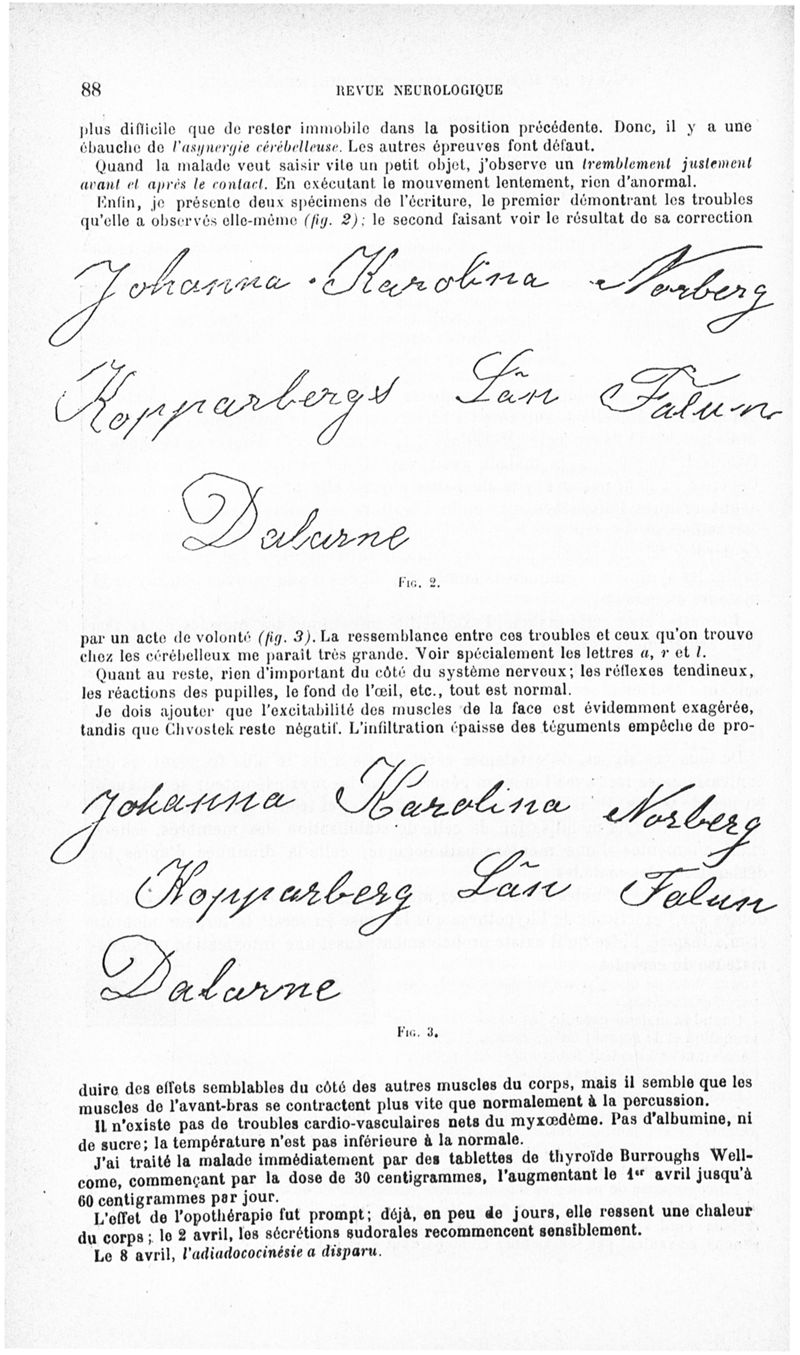 88
REVUE NEUROLOGIQUE
plus difficile que de rester immobile dans la position précédente. Donc, il y a une
ébauche de l'asynergie cérébelleuse. Les autres épreuves font défaut.
Quand la malade veut saisir vite un petit objet, j'observe un tremblement justement
avant et après le contact. En exécutant le mouvement lentement, rien d'anormal.
Enfin, je présente deux spécimens de l'écriture, le premier démontrant les troubles
qu'elle a observés elle-même (fig. 2); le second faisant voir le résultat de sa correction
Johanna · Karolina Norberg
Kopparbergs Län Falun
Dalarne
FIG. 2.
par un acte de volonté (fig. 3). La ressemblance entre ces troubles et ceux qu'on trouve
chez les cérébelleux me paraît très grande. Voir spécialement les lettres a, r et l.
Quant au reste, rien d'important du côté du système nerveux; les réflexes tendineux,
les réactions des pupilles, le fond de l'œil, etc., tout est normal.
Je dois ajouter que l'excitabilité des muscles de la face est évidemment exagérée,
tandis que Chvostek reste négatif. L'infiltration épaisse des téguments empêche de pro-
Johanna Karolina Norberg
Kopparberg Län Falun
Dalarne
FIG. 3.
duire des effets semblables du côté des autres muscles du corps, mais il semble que les
muscles de l'avant-bras se contractent plus vite que normalement à la percussion.
Il n'existe pas de troubles cardio-vasculaires nets du myxœdème. Pas d'albumine, ni
de sucre; la température n'est pas inférieure à la normale.
J'ai traité la malade immédiatement par des tablettes de thyroïde Burroughs Well-
come, commençant par la dose de 30 centigrammes, l'augmentant le 1er avril jusqu'à
60 centigrammes par jour.
L'effet de l'opothérapie fut prompt; déjà, en peu de jours, elle ressent une chaleur
du corps; le 2 avril, les sécrétions sudorales recommencent sensiblement.
Le 8 avril, l'adiadococinésie a disparu.